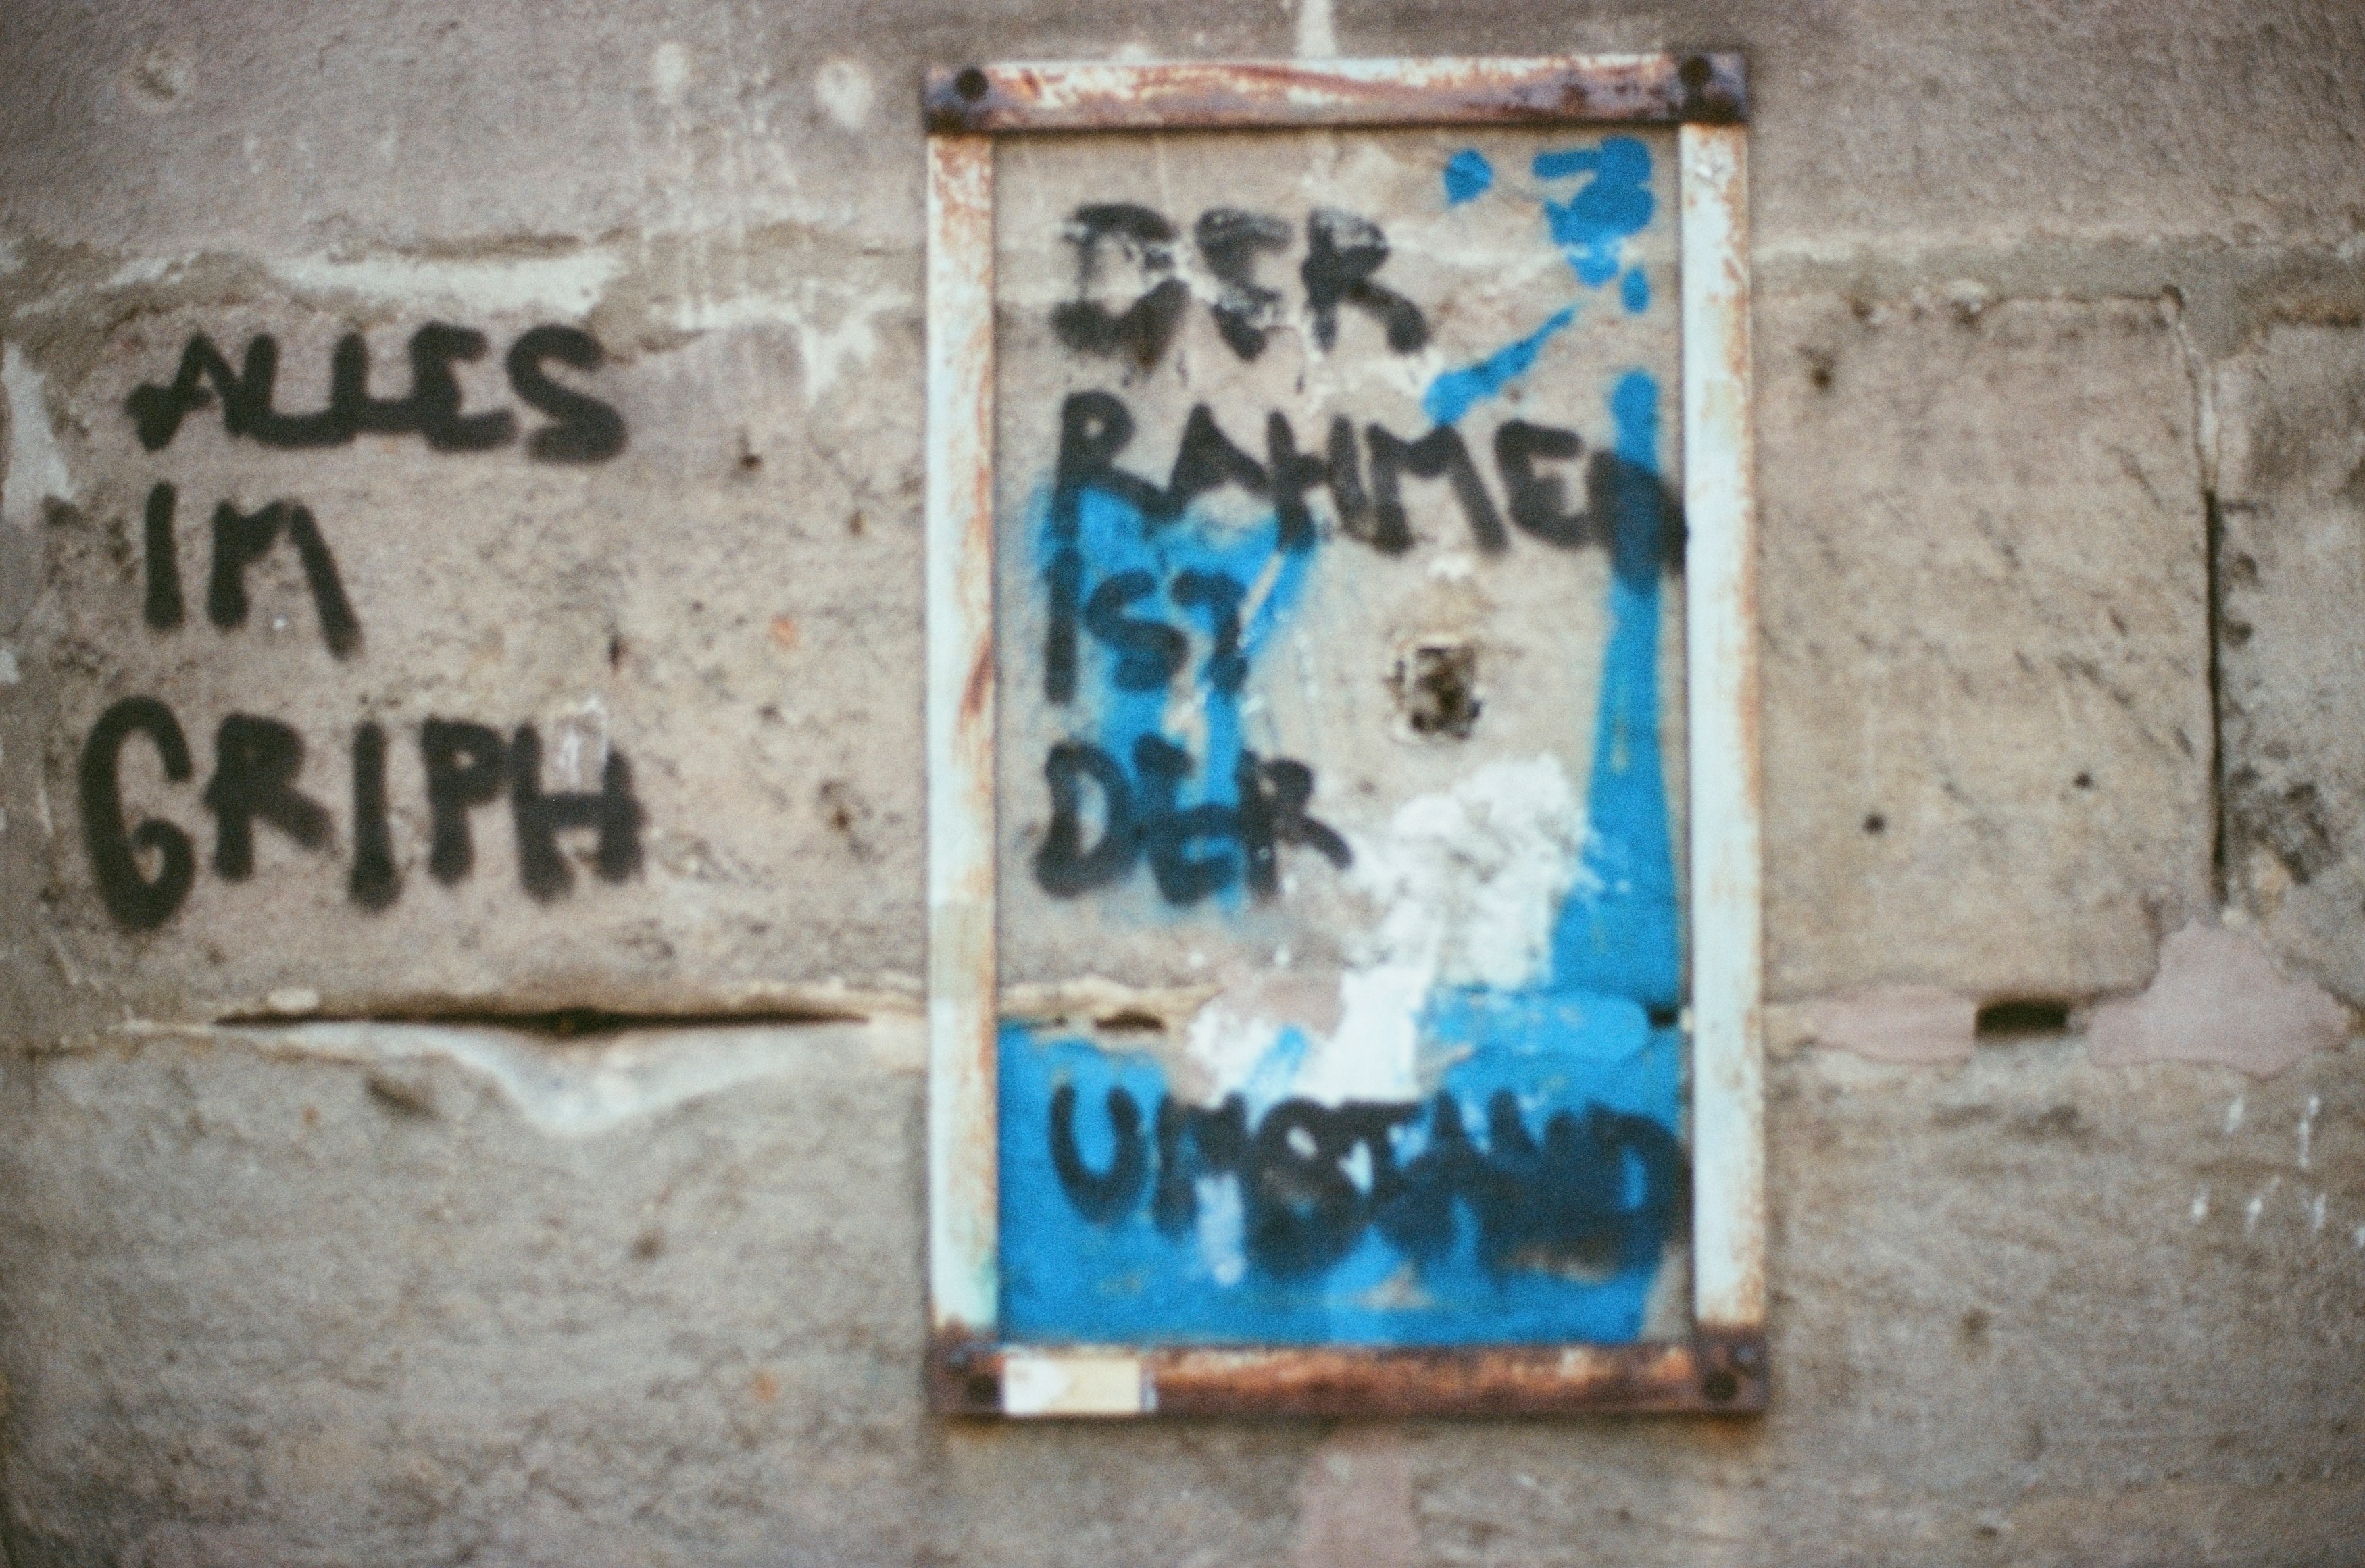 ALLES
IM
GRIPH
DER
RAHMEN
IST
DER
UMSTAND